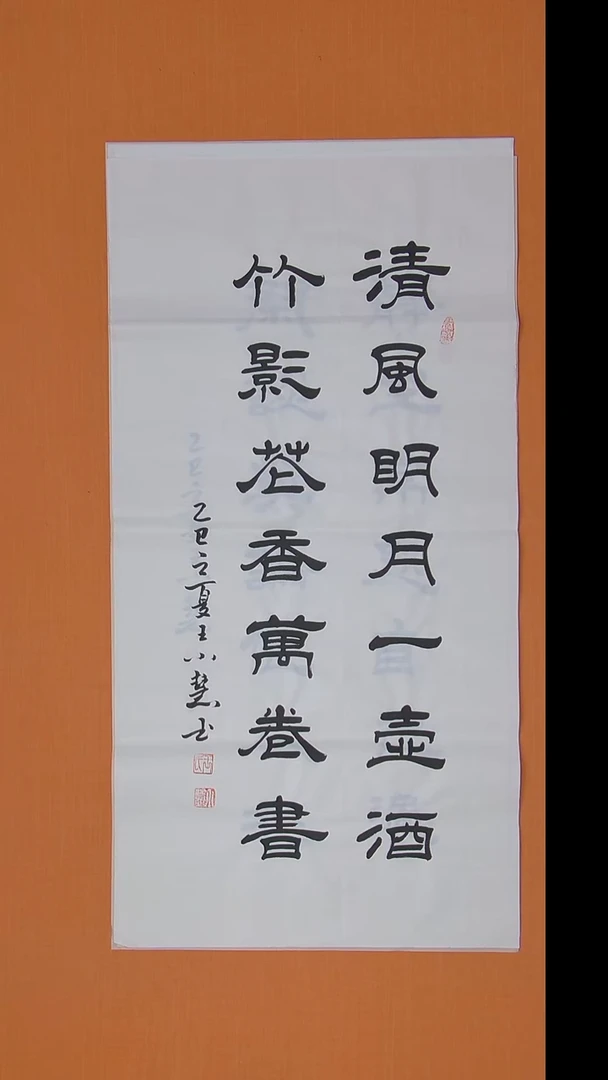 清風明月一壺酒
竹影花香萬卷書
乙巳立夏王小慧书